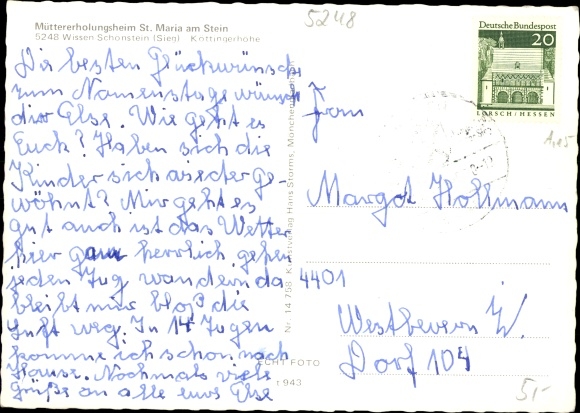 Müttererholungsheim St. Maria am Stein
5248 Wissen Schönstein (Sieg) Kottingerhöhe
5248
Die besten Glückwünsche
zum Namenstage wünscht
dir Else. Wie geht es
Euch? Haben sich die
Kinder sich wieder ge-
wöhnt? Mir geht es
gut auch ist das Wetter
hier ganz herrlich gehen
jeden Tag wandern da
bleibt mir bloß die
Luft weg. In 14 Tagen
komme ich schon nach
Hause. Nochmals viele
grüße an alle eure Else
Nr. 14 758 Kunstverlag Hans Storms, Mönchengladbach
ECHT FOTO
t 943
Deutsche Bundespost
20
LORSCH/HESSEN
Frau
Margot Hollmann
4401
Westbevern W.
Dorf 104
5,-